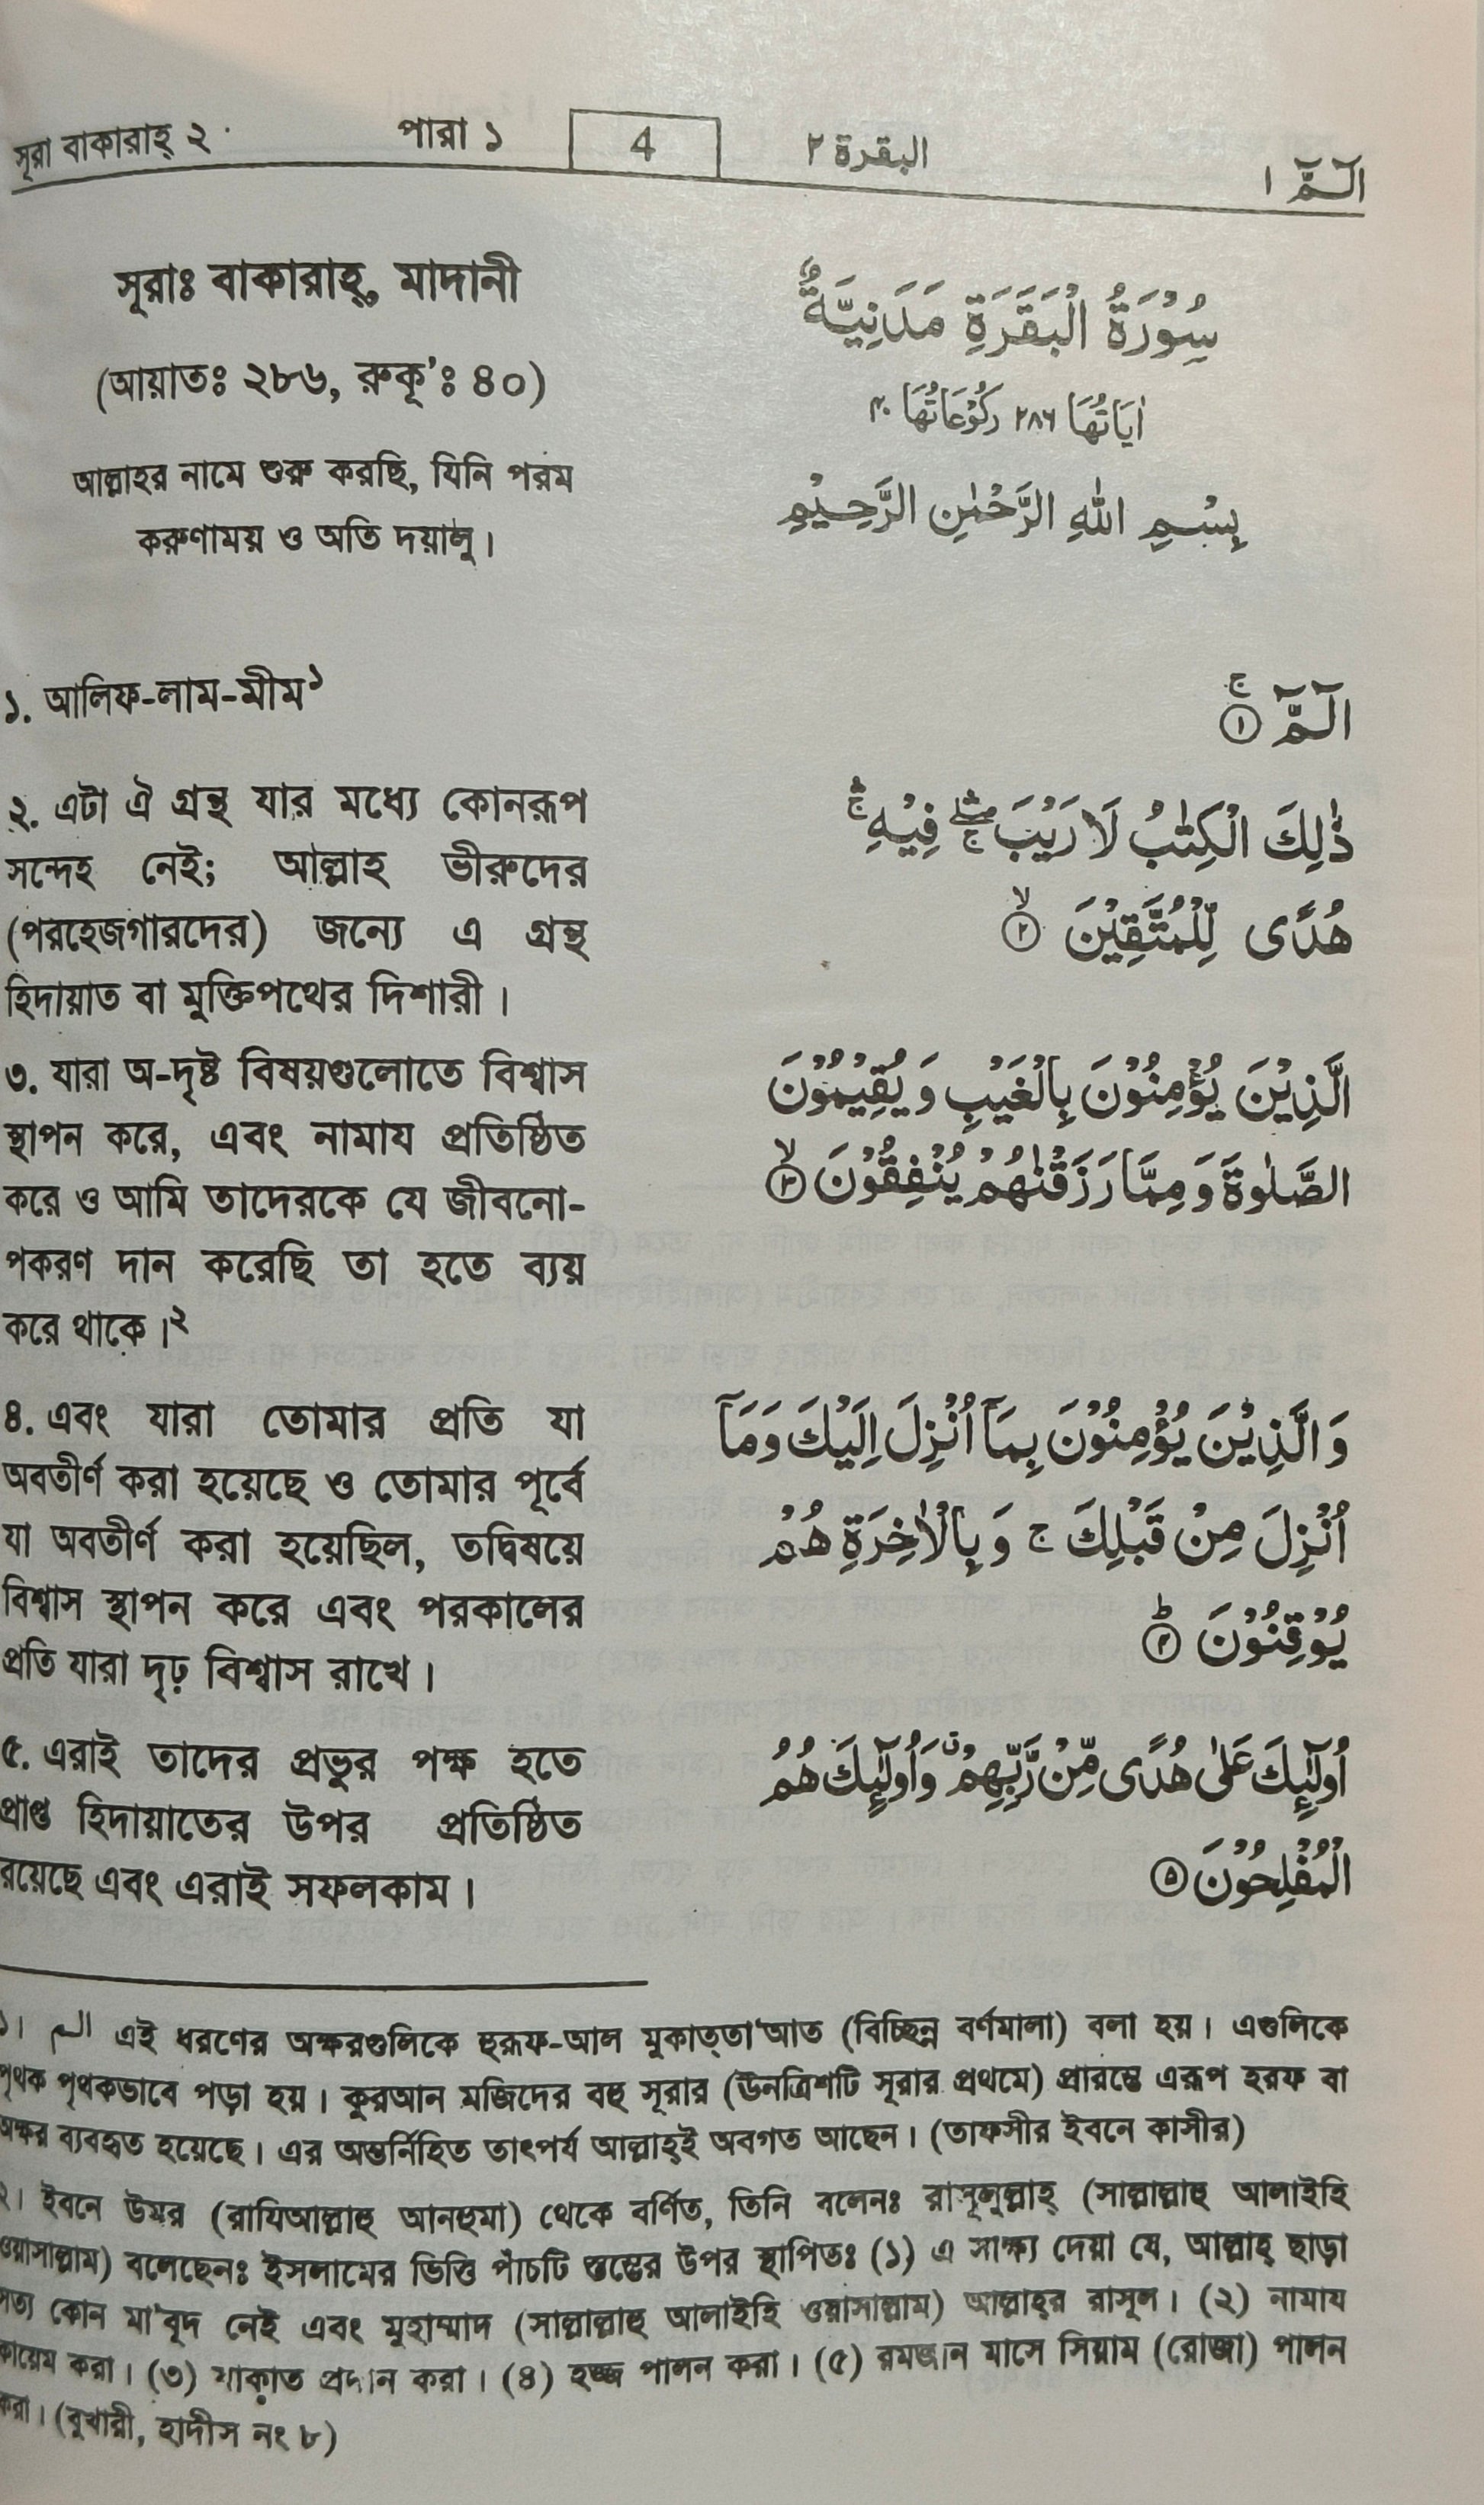 সূরা বাকারাহ্ ২ পারা ১ 4 البقرة ٢ الٓـمّٓ ١
সূরাঃ বাকারাহ্, মাদানী
(আয়াতঃ ২৮৬, রুকূ'ঃ ৪০)
আল্লাহর নামে শুরু করছি, যিনি পরম
করুণাময় ও অতি দয়ালু।
سُوْرَةُ الْبَقَرَةِ مَدَنِيَّةٌ
اٰيَاتُهَا ٢٨٦ رُكُوْعَاتُهَا ٤٠
بِسْمِ اللهِ الرَّحْمٰنِ الرَّحِيْمِ
১. আলিফ-লাম-মীম১
২. এটা ঐ গ্রন্থ যার মধ্যে কোনরূপ
সন্দেহ নেই; আল্লাহ ভীরুদের
(পরহেজগারদের) জন্যে এ গ্রন্থ
হিদায়াত বা মুক্তিপথের দিশারী।
৩. যারা অ-দৃষ্ট বিষয়গুলোতে বিশ্বাস
স্থাপন করে, এবং নামায প্রতিষ্ঠিত
করে ও আমি তাদেরকে যে জীবনো-
পকরণ দান করেছি তা হতে ব্যয়
করে থাকে।২
৪. এবং যারা তোমার প্রতি যা
অবতীর্ণ করা হয়েছে ও তোমার পূর্বে
যা অবতীর্ণ করা হয়েছিল, তদ্বিষয়ে
বিশ্বাস স্থাপন করে এবং পরকালের
প্রতি যারা দৃঢ় বিশ্বাস রাখে।
৫. এরাই তাদের প্রভুর পক্ষ হতে
প্রাপ্ত হিদায়াতের উপর প্রতিষ্ঠিত
রয়েছে এবং এরাই সফলকাম।
الٓـمّٓ ۚ ١
ذٰلِكَ الْكِتٰبُ لَا رَيْبَ ۛۚ فِيْهِ ۛۚ
هُدًى لِّلْمُتَّقِيْنَ ۙ ٢
الَّذِيْنَ يُؤْمِنُوْنَ بِالْغَيْبِ وَيُقِيْمُوْنَ
الصَّلٰوةَ وَمِمَّا رَزَقْنٰهُمْ يُنْفِقُوْنَ ۙ ٣
وَالَّذِيْنَ يُؤْمِنُوْنَ بِمَآ اُنْزِلَ اِلَيْكَ وَمَآ
اُنْزِلَ مِنْ قَبْلِكَ ج وَبِالْاٰخِرَةِ هُمْ
يُوْقِنُوْنَ ؕ ٤
اُولٰٓئِكَ عَلٰى هُدًى مِّنْ رَّبِّهِمْ ۗ وَاُولٰٓئِكَ هُمُ
الْمُفْلِحُوْنَ ٥
১। الم এই ধরণের অক্ষরগুলিকে হুরূফ-আল মুকাত্তা'আত (বিচ্ছিন্ন বর্ণমালা) বলা হয়। এগুলিকে
পৃথক পৃথকভাবে পড়া হয়। কুরআন মজিদের বহু সূরার (ঊনত্রিশটি সূরার প্রথমে) প্রারম্ভে এরূপ হরফ বা
অক্ষর ব্যবহৃত হয়েছে। এর অন্তর্নিহিত তাৎপর্য আল্লাহ্ই অবগত আছেন। (তাফসীর ইবনে কাসীর)
২। ইবনে উমর (রাযিআল্লাহু আনহুমা) থেকে বর্ণিত, তিনি বলেনঃ রাসূলুল্লাহ্ (সাল্লাল্লাহু আলাইহি
ওয়াসাল্লাম) বলেছেনঃ ইসলামের ভিত্তি পাঁচটি স্তম্ভের উপর স্থাপিতঃ (১) এ সাক্ষ্য দেয়া যে, আল্লাহ্ ছাড়া
সত্য কোন মা'বূদ নেই এবং মুহাম্মাদ (সাল্লাল্লাহু আলাইহি ওয়াসাল্লাম) আল্লাহ্‌র রাসূল। (২) নামায
কায়েম করা। (৩) যাকাত প্রদান করা। (৪) হজ্জ পালন করা। (৫) রমজান মাসে সিয়াম (রোজা) পালন
করা। (বুখারী, হাদীস নং ৮)